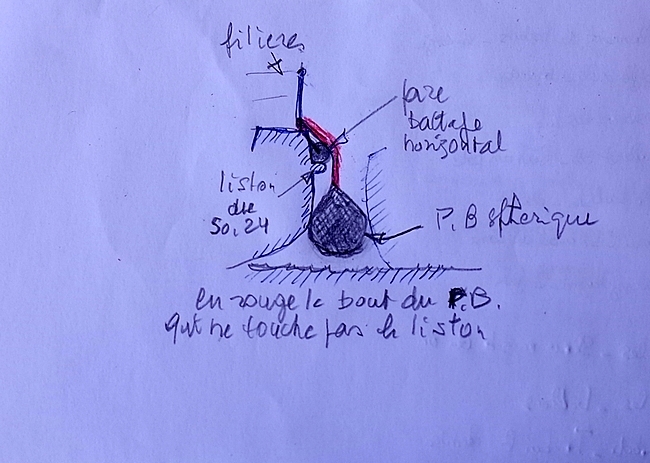 filieres
pare
battage
horizontal
liston
du
So, 24
P. B sphérique
en rouge le bout du P.B.
qui ne touche pas le liston